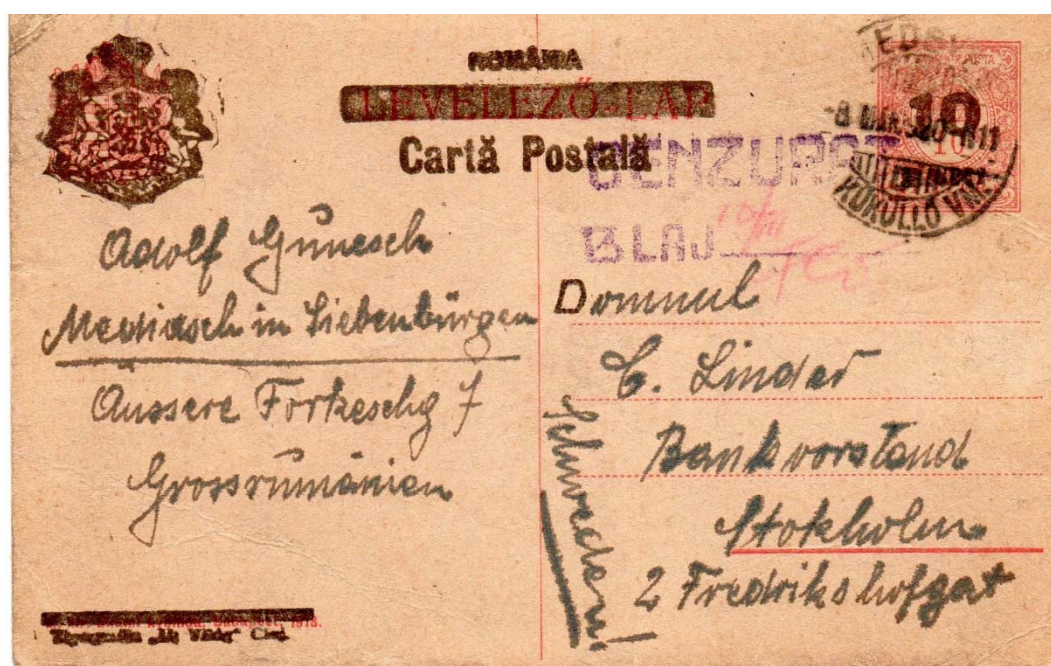 ROMÂNIA
LEVELEZŐ-LAP
Cartă Postală
10
-8 MAR
KÜKÜLLŐ VM.
CENZURAT
BLAJ
Adolf Gunesch
Mediasch in Siebenbürgen
Äussere Forkeschg 7
Grossrumänien
Domnul
C. Linder
Bankvorstand
Stokholm
2 Fredrikshofgat
Schweden!
1918.
Tipografia Cluj